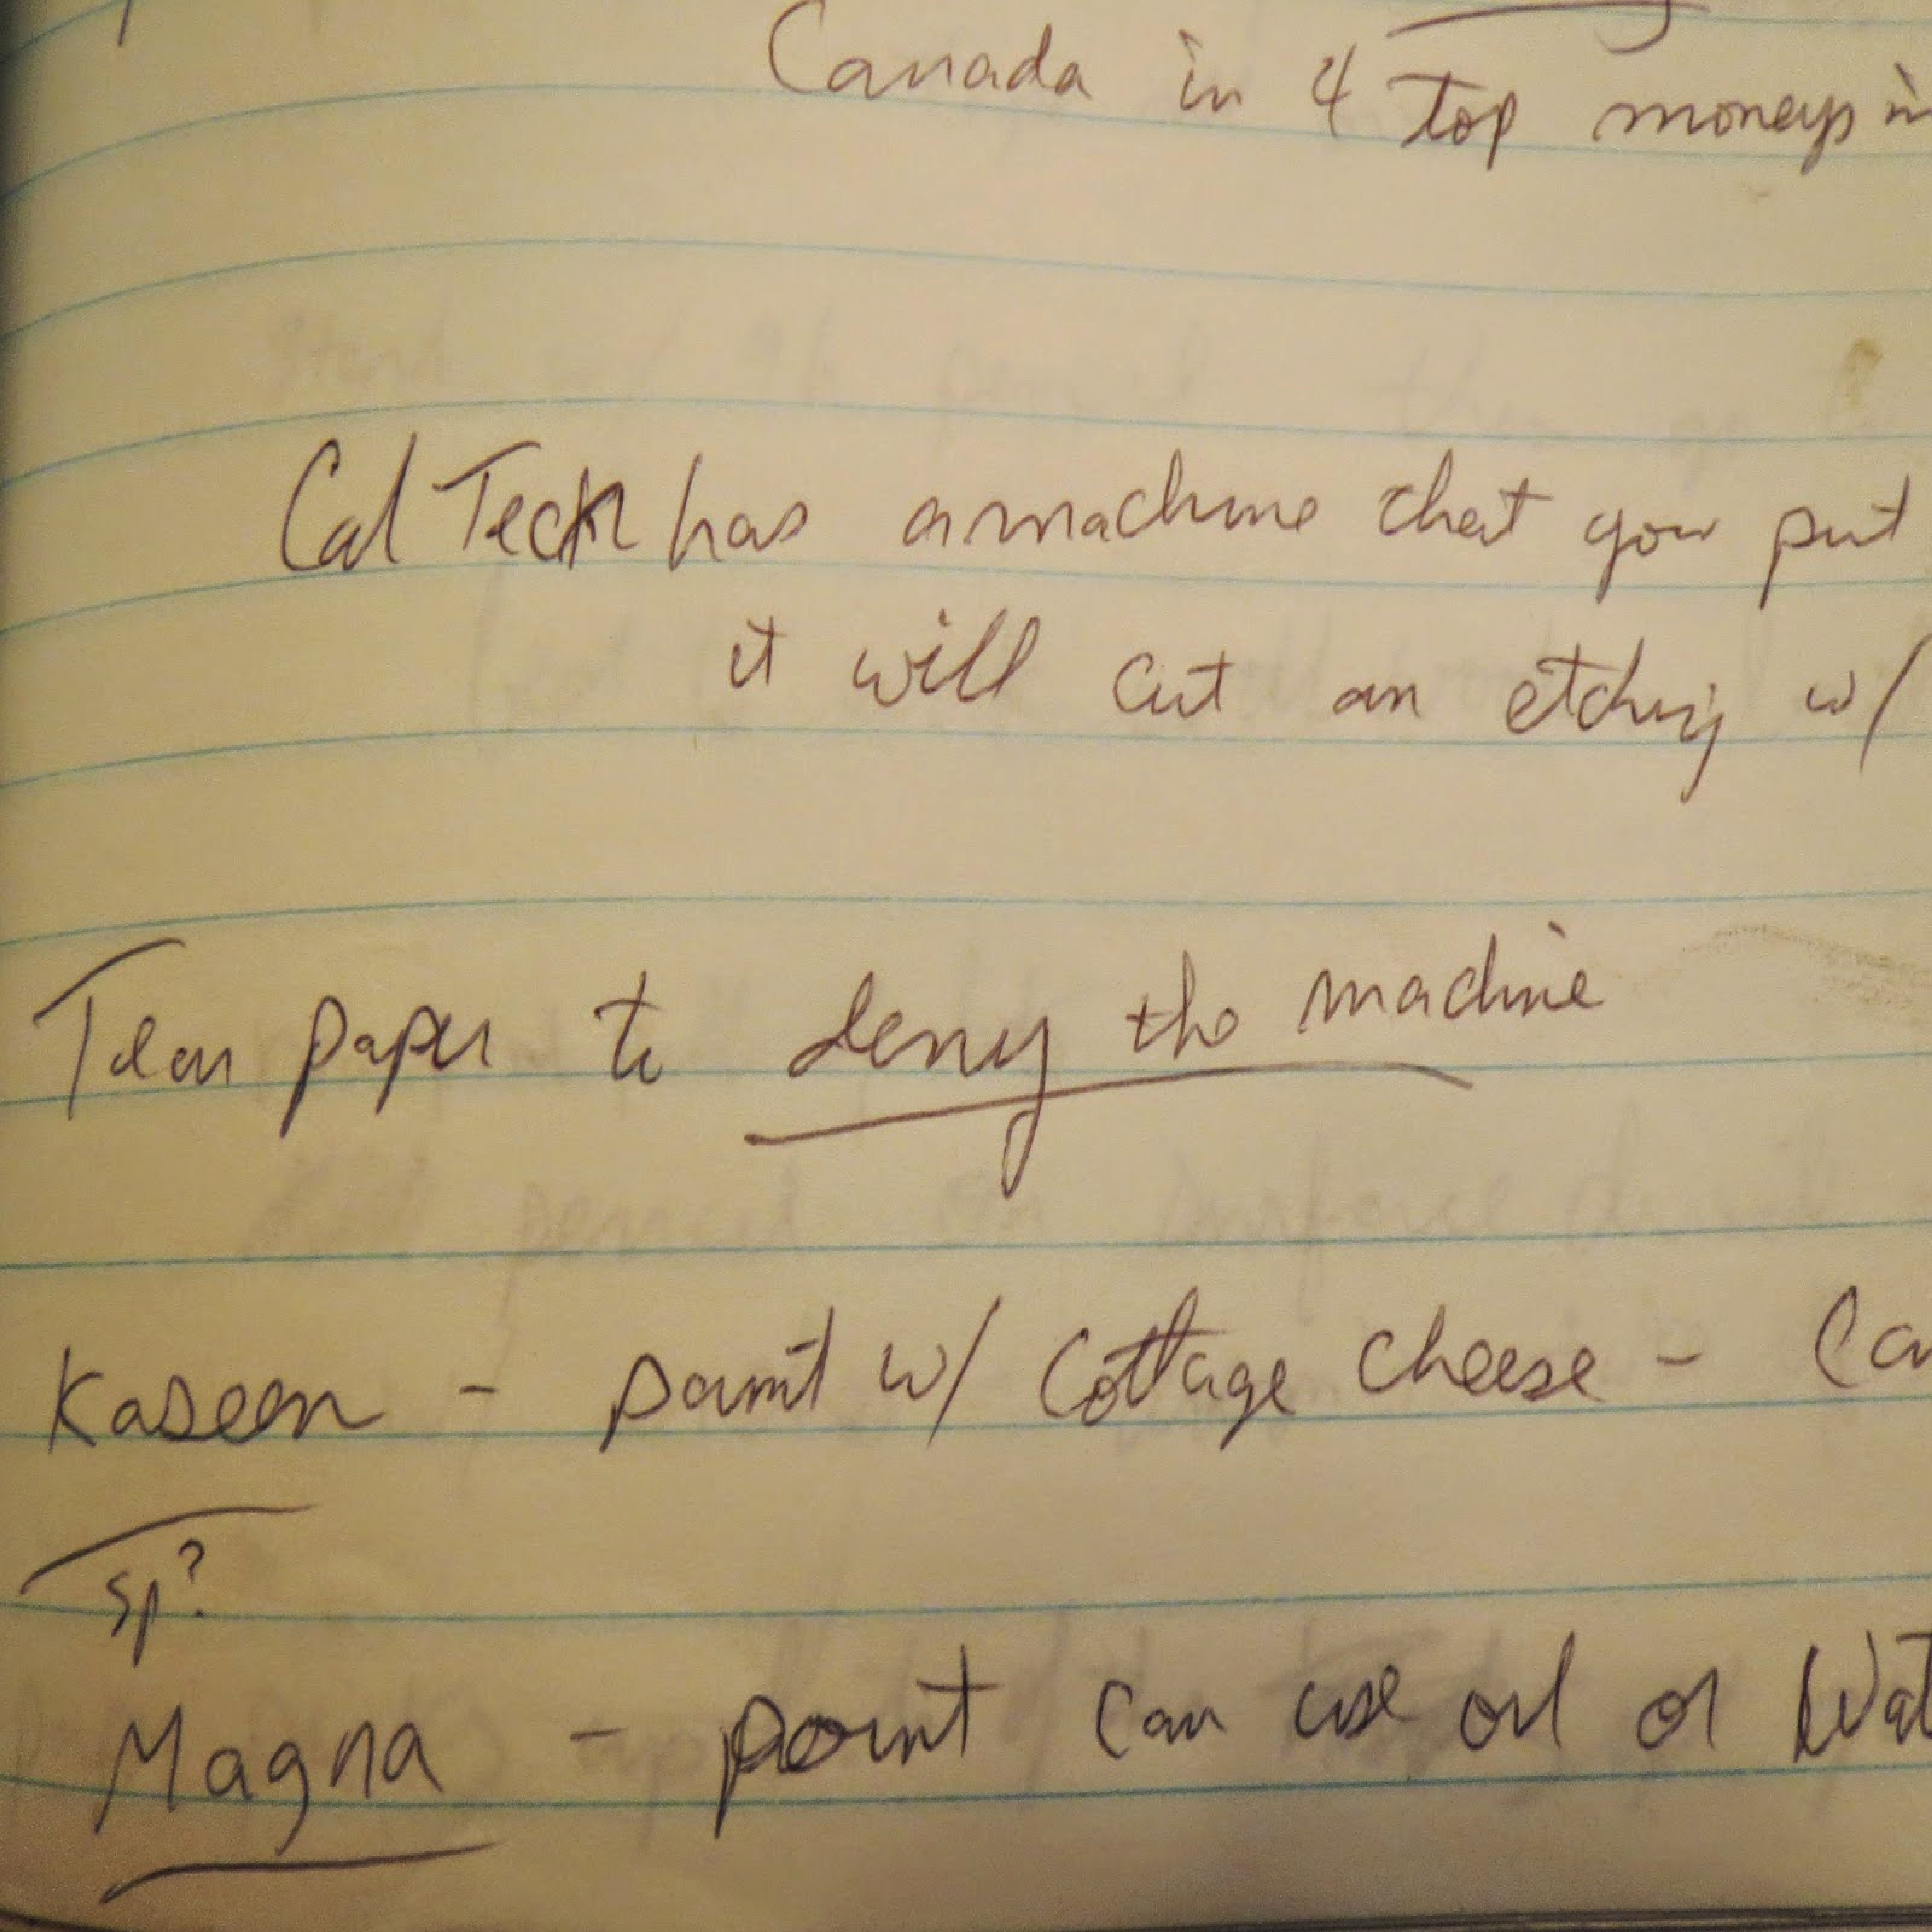 Canada in 4 top moneys in
Cal Tech has a machine that you put
it will cut an etching w/
Tear paper to deny the machine
Kaseen - paint w/ Cottage cheese - Ca
sp?
Magna - paint can use oil or Wat